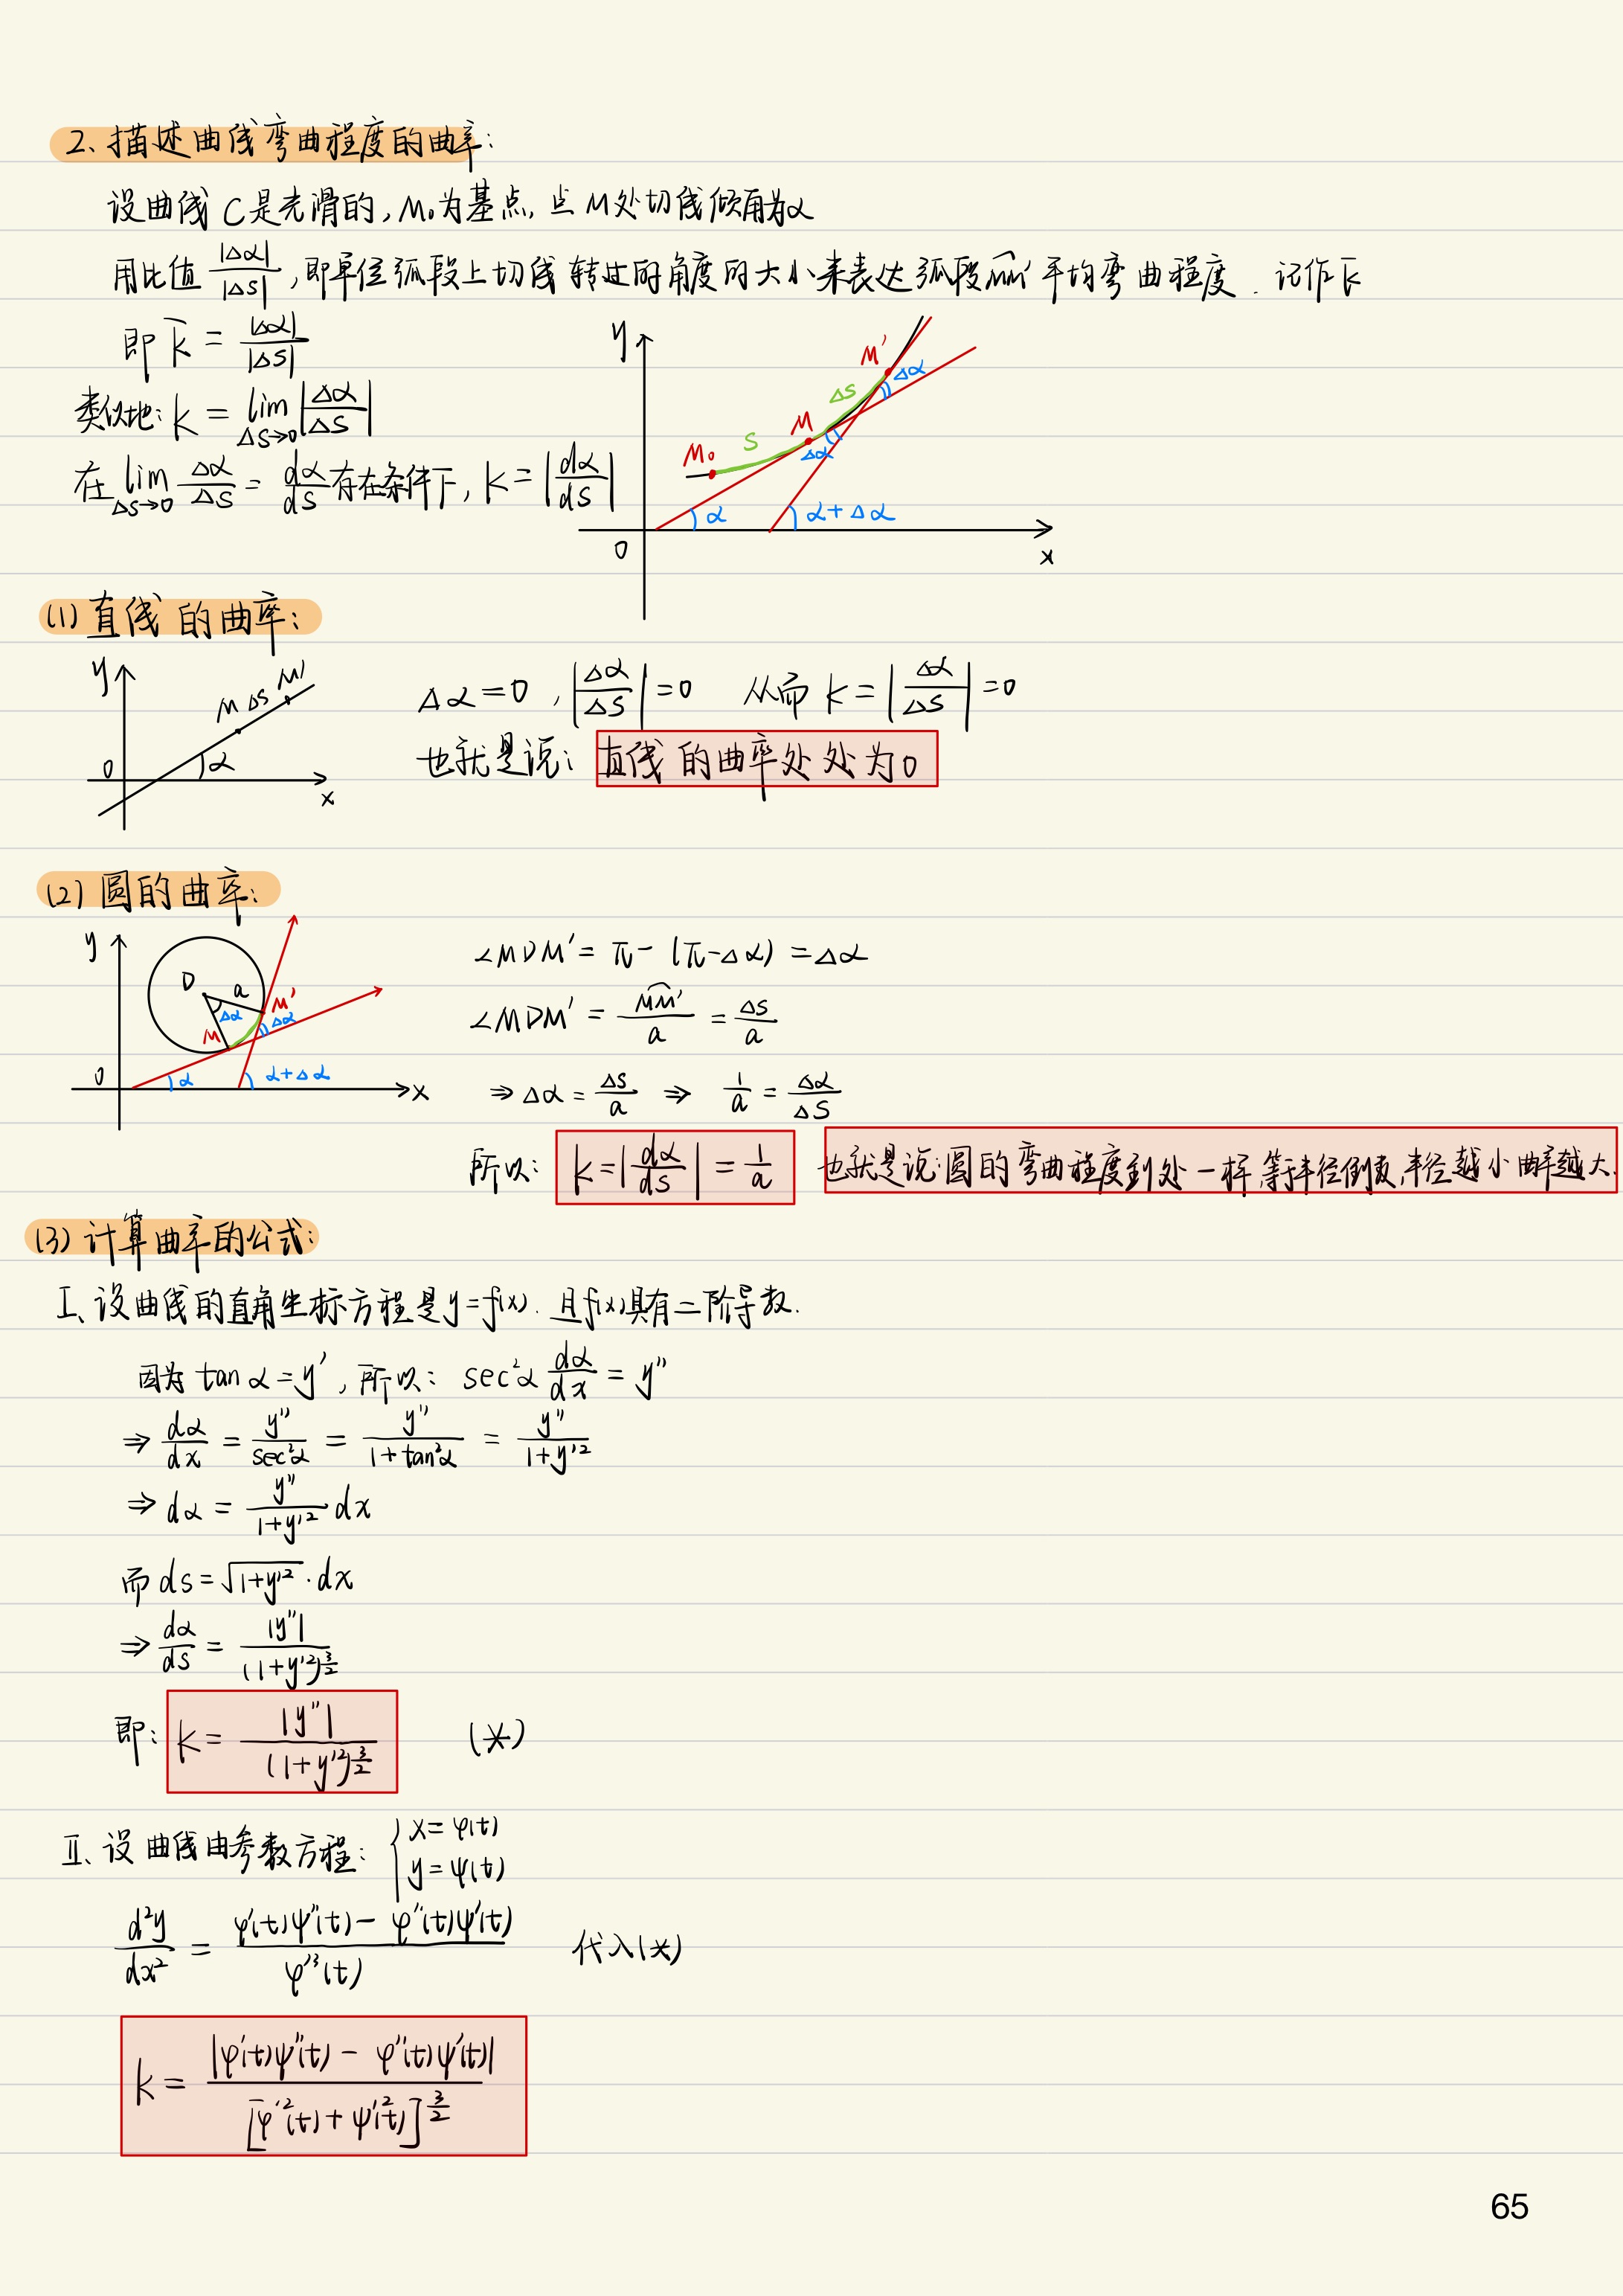 2、描述曲线弯曲程度的曲率:
设曲线C是光滑的,M₀为基点,点M处切线倾角为α
用比值 |Δα|/|Δs| ,即单位弧段上切线转过的角度的大小来表达弧段MM′平均弯曲程度.记作k̄
即 k̄ = |Δα|/|Δs|
类似地: k = lim_{Δs→0} |Δα/Δs|
在 lim_{Δs→0} Δα/Δs = dα/ds 存在条件下, k = |dα/ds|
y
M′
Δα
Δs
M
S
M₀
Δα
α
α+Δα
0
x
(1)直线的曲率:
y
M Δs M′
0
α
x
Δα=0 , |Δα/Δs|=0 从而 k=|Δα/Δs|=0
也就是说: 直线的曲率处处为0
(2)圆的曲率:
y
D
a
M′
Δα
Δα
M
0
α
α+Δα
x
∠MDM′ = π-(π-Δα) = Δα
∠MDM′ = MM′/a = Δs/a
⇒ Δα = Δs/a ⇒ 1/a = Δα/Δs
所以: k=|dα/ds| = 1/a 也就是说:圆的弯曲程度到处一样,等于半径倒数,半径越小曲率越大.
(3)计算曲率的公式:
I、设曲线的直角坐标方程是y=f(x).且f(x)具有二阶导数.
因为 tanα=y′,所以: sec²α dα/dx = y″
⇒ dα/dx = y″/sec²α = y″/(1+tan²α) = y″/(1+y′²)
⇒ dα = y″/(1+y′²) dx
而 ds=√(1+y′²)·dx
⇒ dα/ds = |y″|/(1+y′²)^{3/2}
即: k = |y″|/(1+y′²)^{3/2} (*)
II、设曲线由参数方程: { x=φ(t)
y=ψ(t)
d²y/dx² = (φ′(t)ψ″(t) - φ″(t)ψ′(t))/φ′³(t) 代入(*)
k = |φ′(t)ψ″(t) - φ″(t)ψ′(t)|/[φ′²(t)+ψ′²(t)]^{3/2}
65